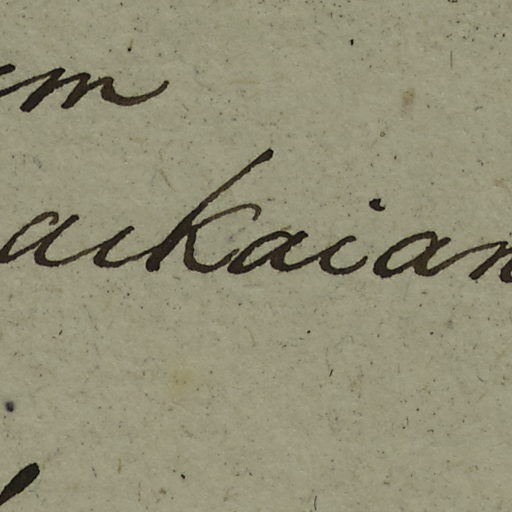 em
aikaian